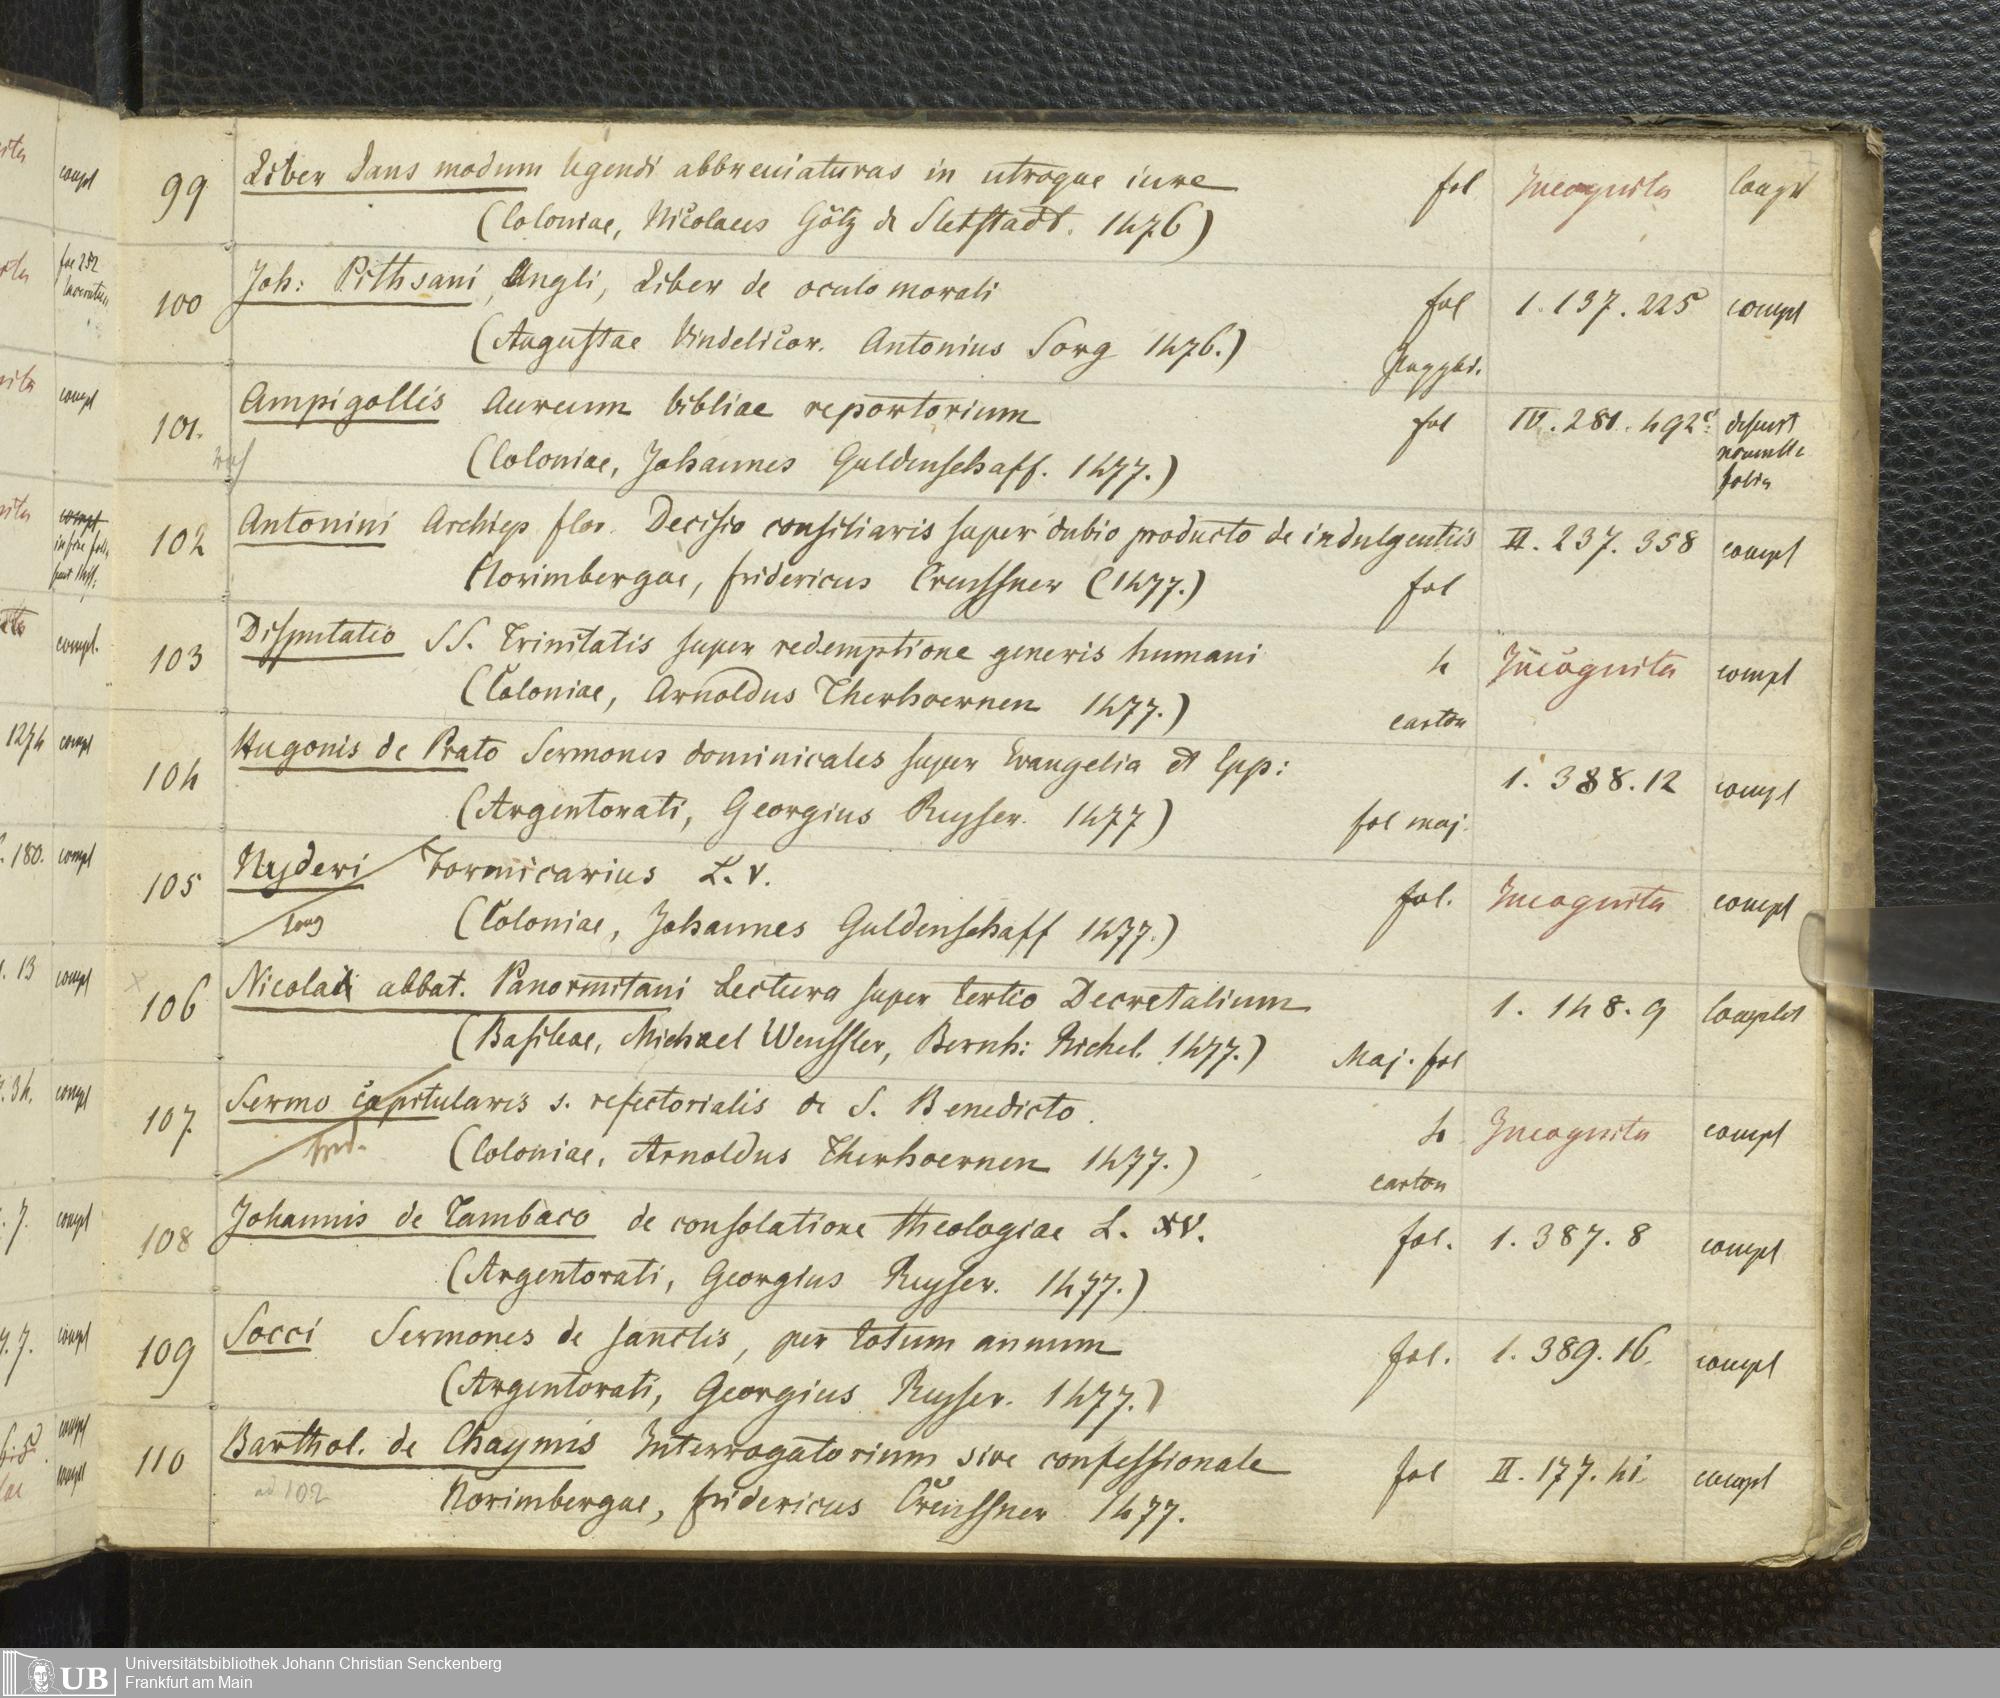 99 Liber dans modum legendi abbreuiaturas in utroque iure fol Incognita Complt
(Coloniae, Nicolaus Götz de Sletstadt. 1476)
100 Joh: Pithsani, Angli, Liber de oculo morali fol 1. 137. 225 compl
(Augustae Vindelicor. Antonius Sorg 1476.)
101. Ampigollis Aureum bibliae repertorium fol IV. 281. 492c. desunt
nonnulla
folia
(Coloniae, Johannes Guldenschaff. 1477.)
102 Antonini Archiep flor. Decisio consiliaris super dubio producto de indulgentiis II. 237. 358 compl
Norimbergae, fridericus Creussner (1477.) fol
103 Disputatio SS. Trinitatis super redemptione generis humani 4 Incognita compl
(Coloniae, Arnoldus Therhoernen 1477.) carton
104 Hugonis de Prato Sermones dominicales super Evangelia et Epp: 1. 388. 12 compl
(Argentorati, Georgius Ruyser. 1477) fol maj.
105 Nyderi Formicarius L. V. fol. Incognita compl
(Coloniae, Johannes Guldenschaff 1477.)
106 Nicolai abbat. Panormitani Lectura super tertio Decretalium 1. 148. 9 Complet
(Basileae, Michael Wenssler, Bernh: Richel. 1477.) Maj. fol
107. Sermo capitularis s. refectorialis de S. Benedicto. 4 Incognita compl
(Coloniae, Arnoldus Therhoernen 1477.) carton
108 Johannis de Tambaco de consolatione theologiae L. XV. fol. 1. 387. 8 compl
(Argentorati, Georgius Ruyser. 1477.)
109 Socci Sermones de sanctis, per totum annum fol. 1. 389. 16. compl
(Argentorati, Georgius Ruyser. 1477.)
110 Barthol. de Chaymis Interrogatorium sive confessionale fol II. 177. 41. compl
ad 102 Norimbergae, fridericus Creussner 1477.
UB Universitätsbibliothek Johann Christian Senckenberg
Frankfurt am Main